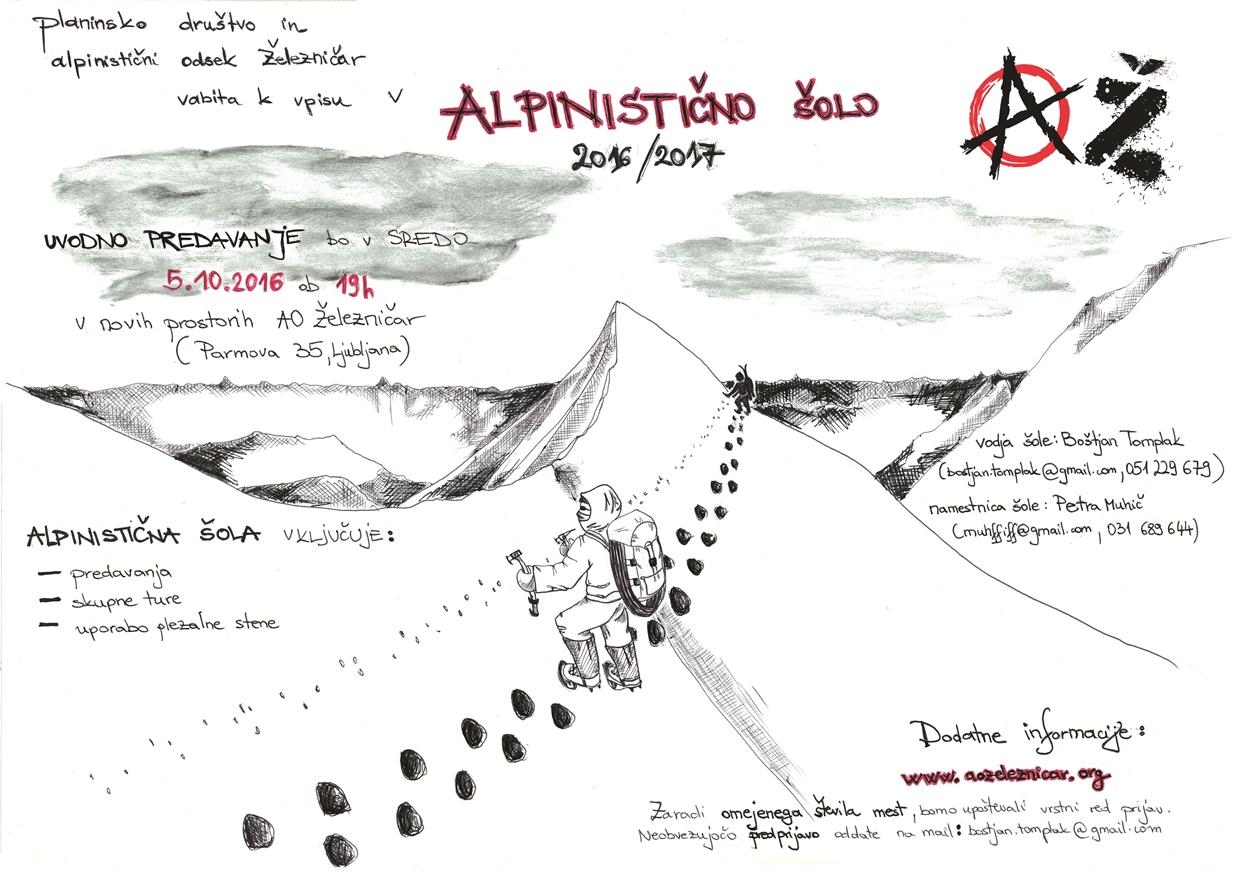 planinsko društvo in
alpinistični odsek Železničar
vabita k vpisu v ALPINISTIČNO ŠOLO
2016/2017
AŽ
UVODNO PREDAVANJE bo v SREDO
5.10.2016 ob 19h
v novih prostorih AO Železničar
(Parmova 35, Ljubljana)
vodja šole: Boštjan Tomplak
(bostjan.tomplak@gmail.com, 051 229 679)
namestnica šole: Petra Muhič
(muhffiff@gmail.com, 031 689 644)
ALPINISTIČNA ŠOLA VKLJUČUJE:
— predavanja
— skupne ture
— uporabo plezalne stene
Dodatne informacije:
www.aozeleznicar.org
Zaradi omejenega števila mest, bomo upoštevali vrstni red prijav.
Neobvezujočo predprijavo oddate na mail: bostjan.tomplak@gmail.com